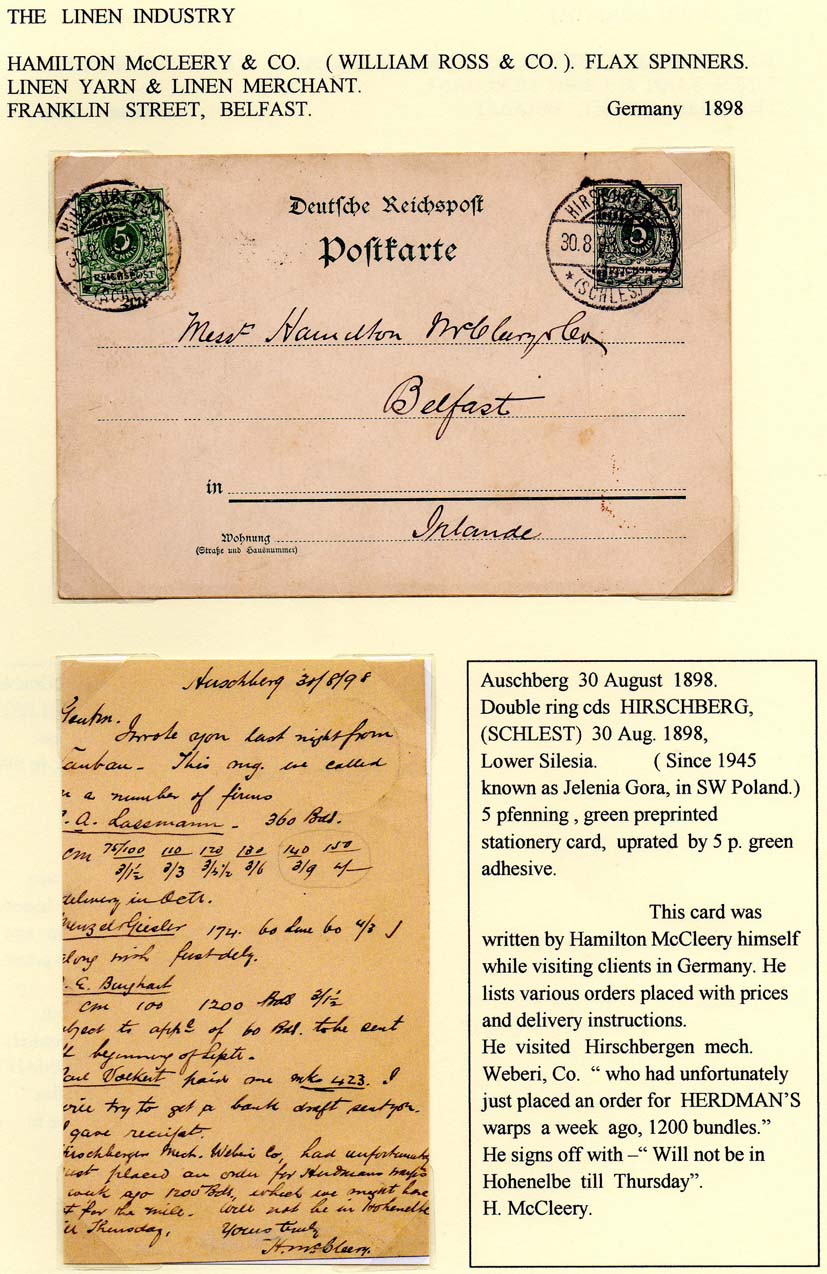 THE LINEN INDUSTRY
HAMILTON McCLEERY & CO. ( WILLIAM ROSS & CO. ). FLAX SPINNERS.
LINEN YARN & LINEN MERCHANT.
FRANKLIN STREET, BELFAST. Germany 1898
Deutsche Reichspost
Postkarte
5
REICHSPOST
HIRSCHBERG
30.8.98
(SCHLES)
5
REICHSPOST
Messrs Hamilton McCleery & Co
Belfast
in
Irlande
Wohnung
(Straße und Hausnummer)
Hirschberg 30/8/98
Gentm.
I wrote you last night from
Lauban - This mg. we called
a number of firms
A. Lassmann - 360 Bdl.
cm 75/100 110 120 130 140 150
3/1½ 3/3 3/4½ 3/6 3/9 4/-
delivery in Octr.
Giesler 174. 60 Line 60 4/3
along with first dely.
E. Burghart
cm 100 1200 Bdls 3/1½
subject to appl of 60 Bdl. to be sent
beginning of Septr.
Carl Volkert paid me mks 423. I
will try to get a bank draft sent you.
I gave receipt.
Hirschberger Mech. Weberi Co, had unfortunately
just placed an order for Herdmans warps
week ago 1200 Bdls, which we might have
got for the mill. Will not be in Hohenelbe
till Thursday. Yours truly
H. McCleery.
Auschberg 30 August 1898.
Double ring cds HIRSCHBERG,
(SCHLEST) 30 Aug. 1898,
Lower Silesia. ( Since 1945
known as Jelenia Gora, in SW Poland.)
5 pfenning , green preprinted
stationery card, uprated by 5 p. green
adhesive.
This card was
written by Hamilton McCleery himself
while visiting clients in Germany. He
lists various orders placed with prices
and delivery instructions.
He visited Hirschbergen mech.
Weberi, Co. “ who had unfortunately
just placed an order for HERDMAN’S
warps a week ago, 1200 bundles.”
He signs off with –“ Will not be in
Hohenelbe till Thursday”.
H. McCleery.